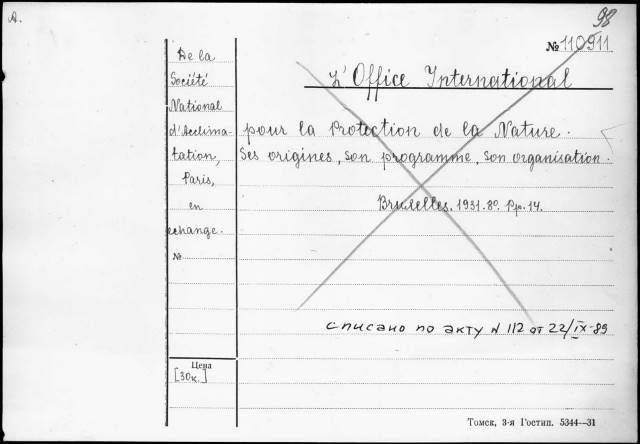 A.
98
№ 110911
De la
Société
National
d'Acclima-
tation,
Paris,
en
echange.
№
L'Office International
pour la Protection de la Nature.
Ses origines, son programme, son organisation.
Bruxelles. 1931. 8°. Pp. 14.
списано по акту N 112 от 22/IX-89
Цена
[30к.]
Томск, 3-я Гостип. 5344—31